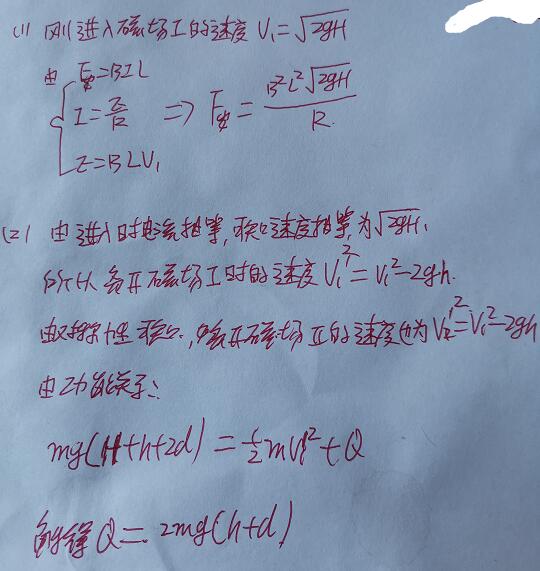 (1) 刚进入磁场I的速度 V₁=√2gH
由 { F安=BIL
I=E/R => F安=B²L²√2gH/R.
E=BLV₁
(2) 由进入时电流相等,联速度相等,为√2gH.
所以离开磁场I时的速度V₁'²=V₁²-2gh.
由对称性 ,离开磁场II的速度也为V₂'²=V₁²-2gh
由功能关系:
mg(H+h+2d)=½mV₂'²+Q
解得Q=2mg(h+d)